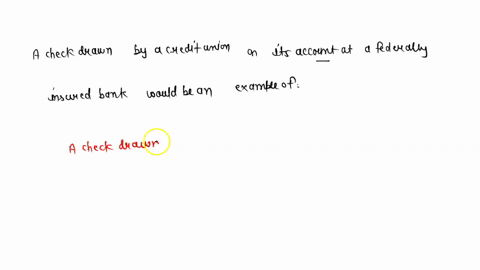 A check drawn by a credit union on its account at a federally
insured bank would be an example of:
A check drawn